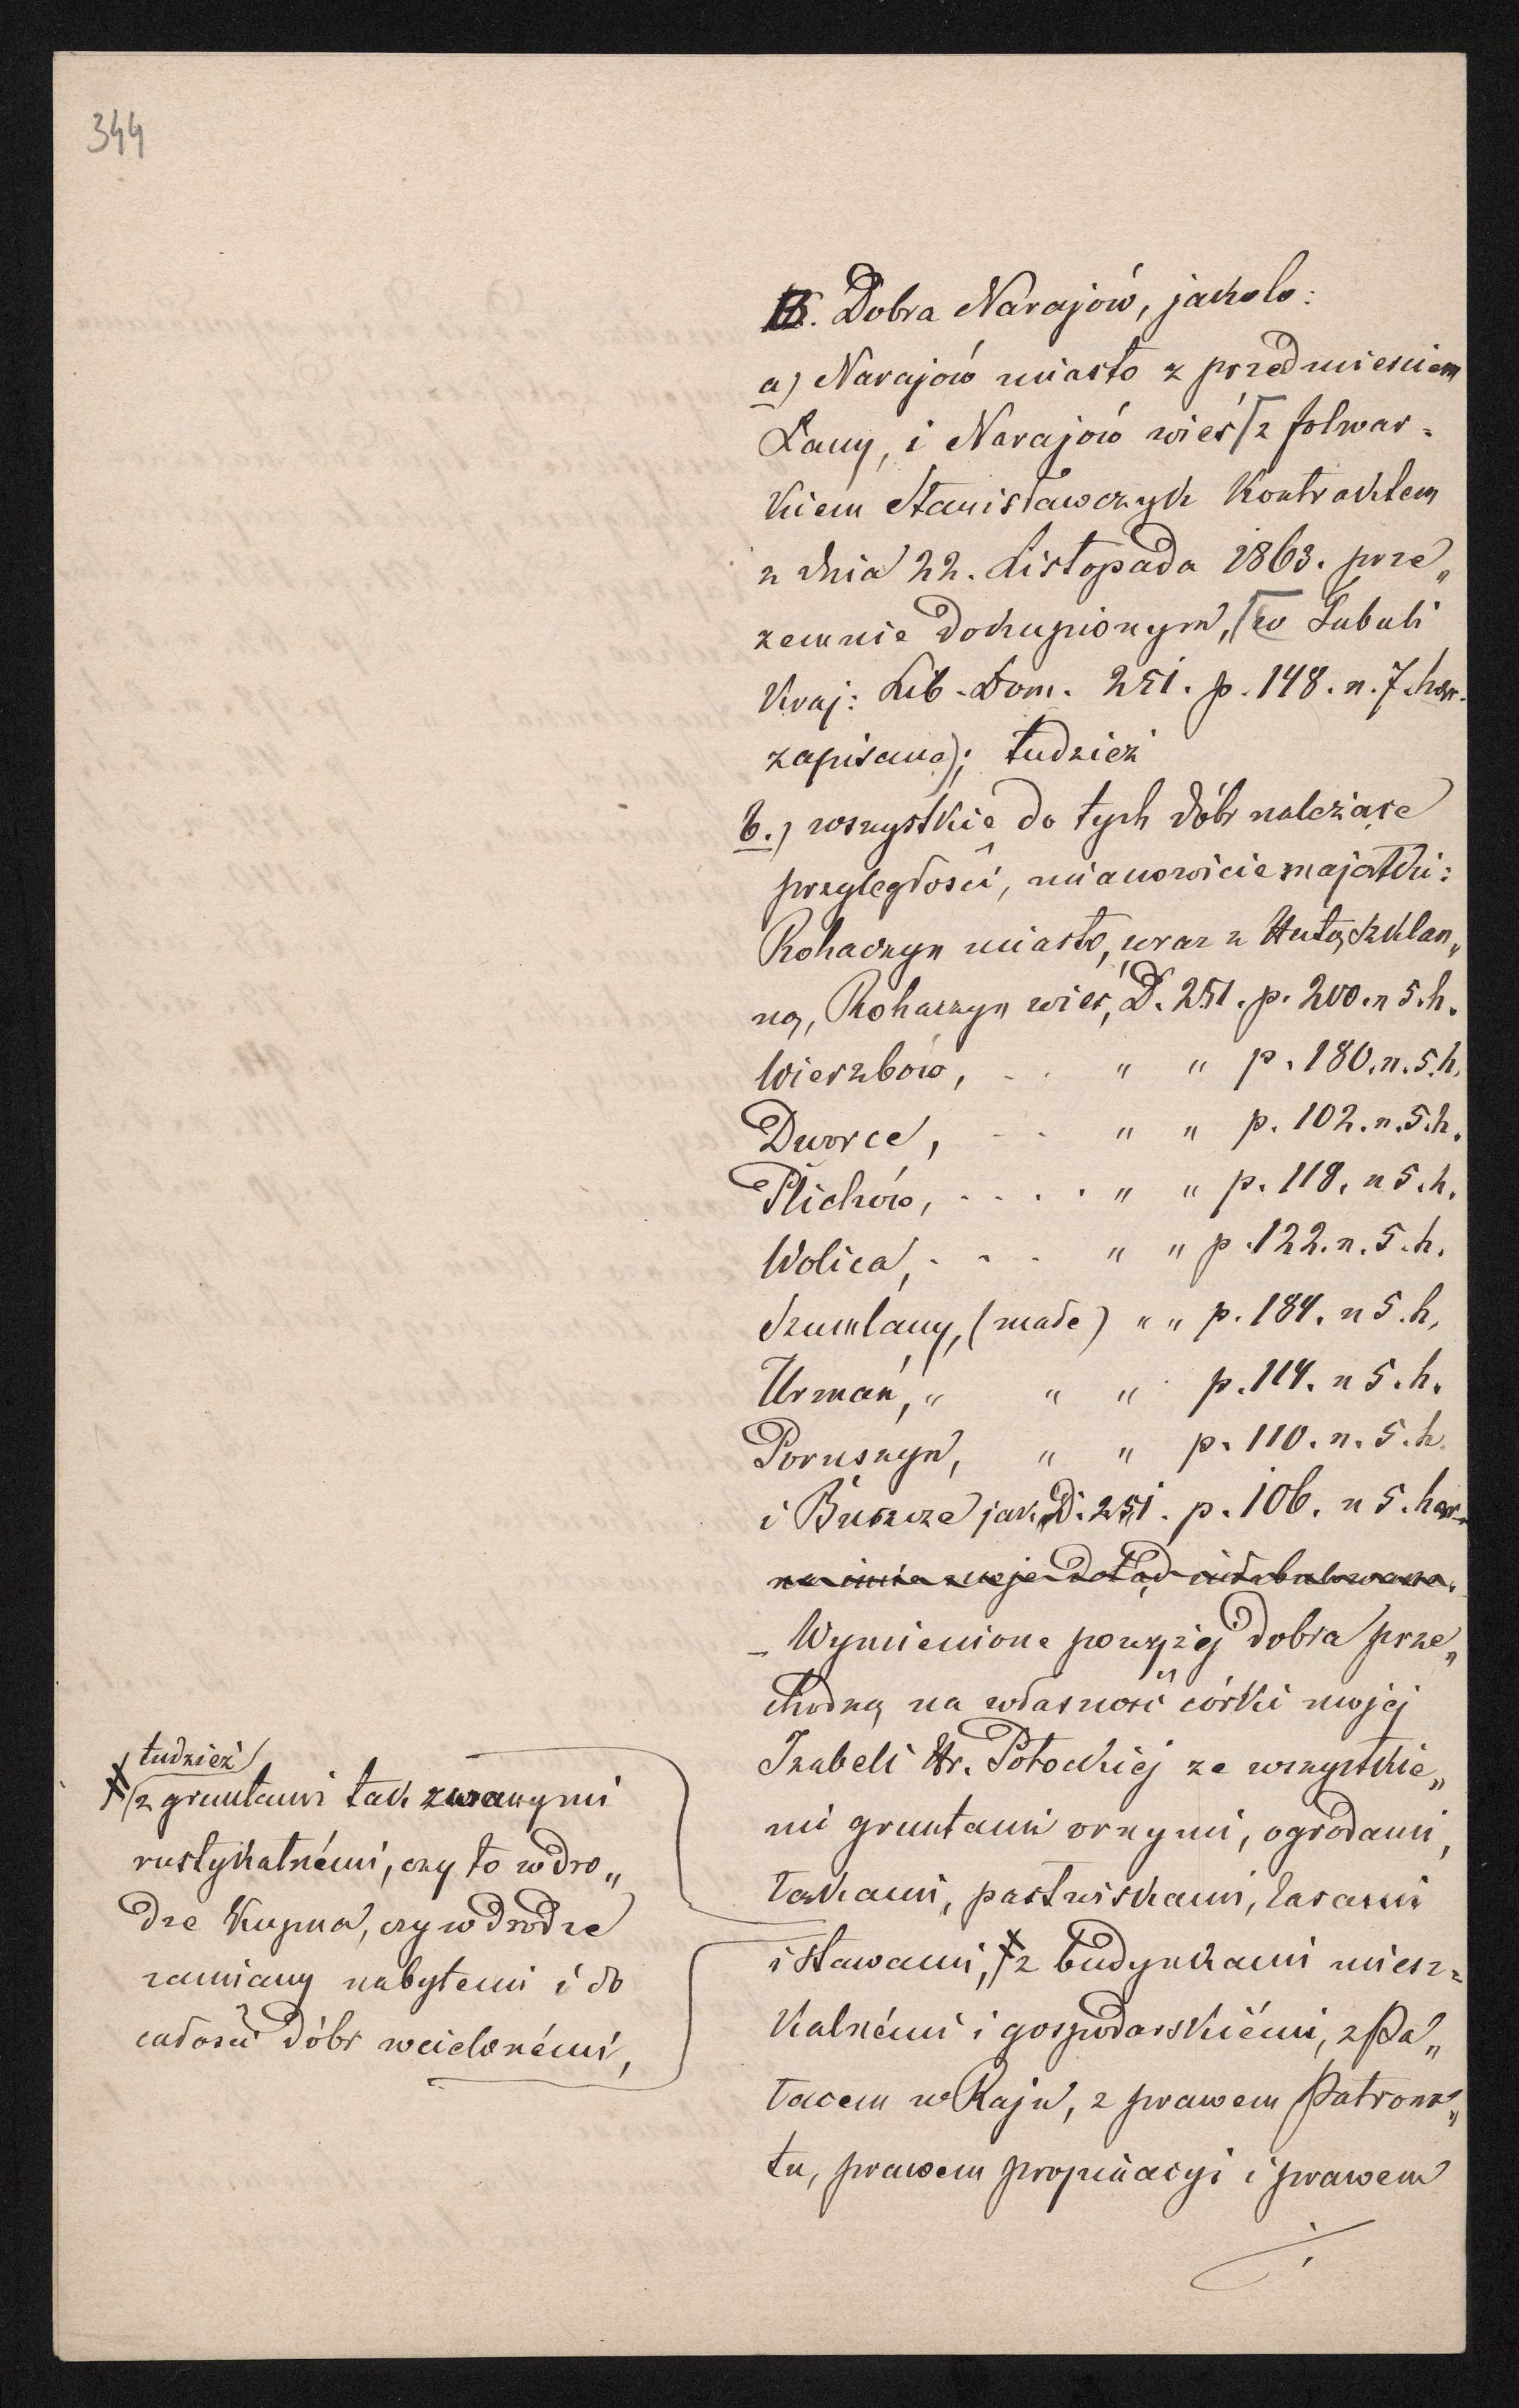 344
B. Dobra Narajów, jakoto:
a) Narajów miasto z przedmieściem
Łany, i Narajów wieś [z folwar=
kiem Stanisławczyk kontraktem
z dnia 22. Listopada 1863. prze„
zemnie dokupionym, [w Tabuli
kraj: Lib. Dom. 251. p. 148. n. 7. haer.
zapisane); tudzież
b.) wszystkie do tych dóbr należące
przyległości, mianowicie majątki:
Rohaczyn miasto, wraz z Hutą szklan„
ną, Rohaczyn wieś, D. 251. p. 200. n 5. h.
Wierzbów, . . " " p. 180. n. 5. h.
Dworce, . . " " p. 102. n. 5. h.
Plichów, . . . . " " p. 118. n 5. h.
Wolica, . . . " " p. 122. n. 5. h.
Szumlany, (małe) " " p. 184. n 5. h.
Urmań, " " " p. 114. n 5. h.
Poruszyn, " " p. 110. n. 5. h.
i Buszcze jak D. 251. p. 106. n 5. haer.
na imie moje dotąd intabulowane.
– Wymienione powyżej dobra prze„
chodzą na własność córki mojej
Izabeli Hr. Potockiej ze wszystkie„
mi gruntami ornymi, ogrodami,
łąkami, pastwiskami, lasami
i stawami, # z budynkami miesz=
kalnémi i gospodarskiémi, z Pa„
łacem w Raju, z prawem Patrona„
tu, prawem propinacyi i prawem
./.
tudzież
# [z gruntami tak zwanymi
rustykalnémi, czy to w dro„
dze kupna, czy w drodze
zamiany nabytemi i do
całości dóbr wcielonémi,